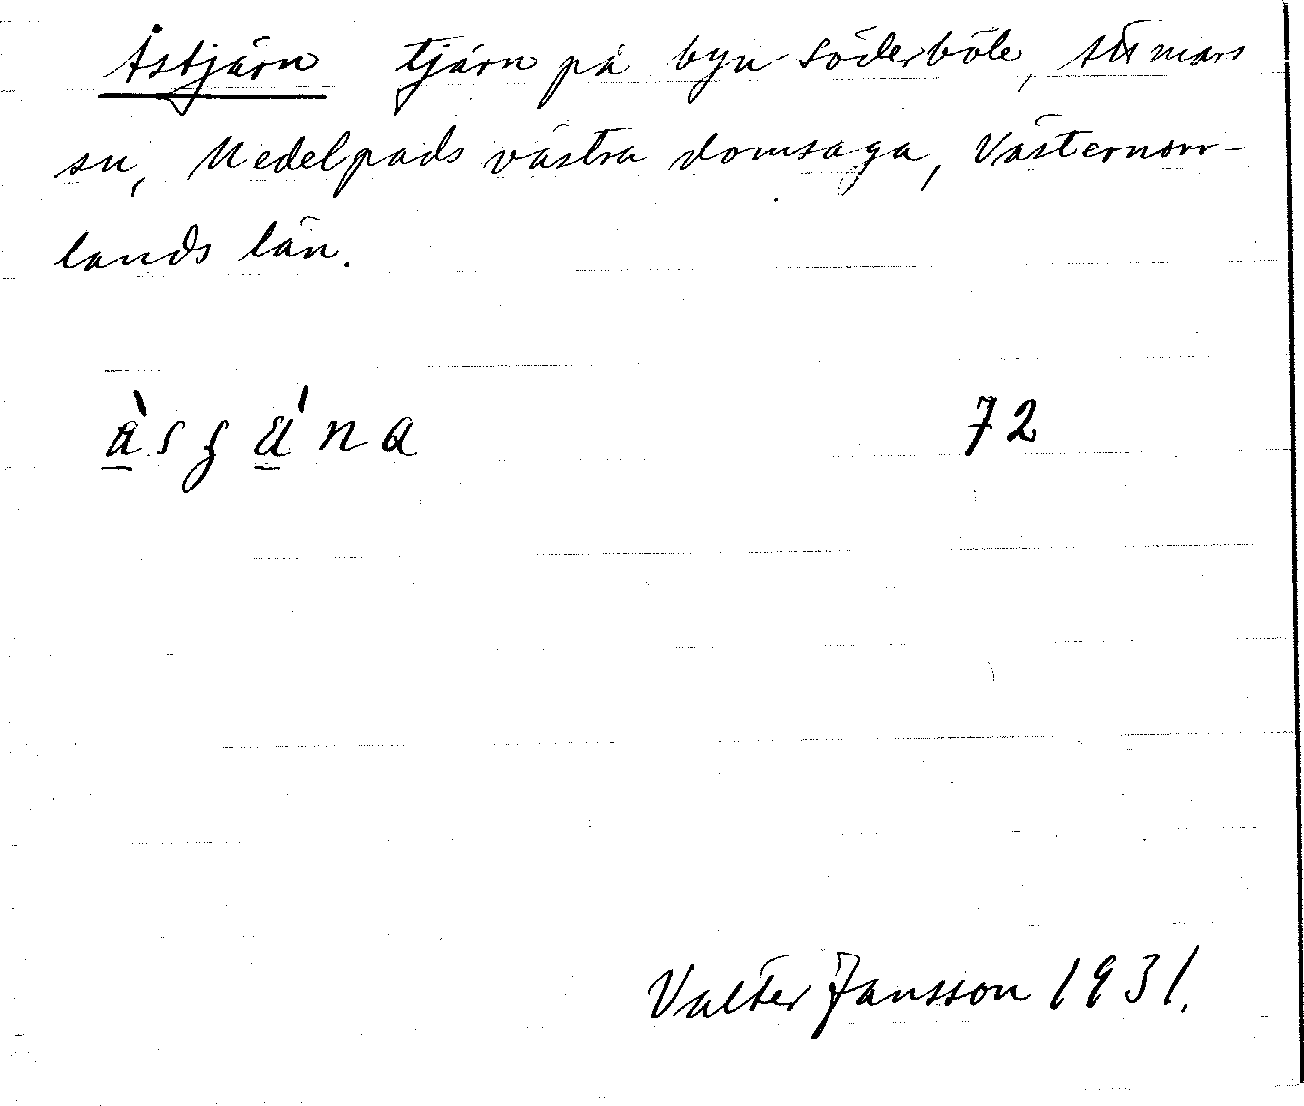 Åstjärn tjärn på byn Söderböle, Attmars
sn, Medelpads västra domsaga, Västernorr-
lands län.
72
Valter Jansson 1931.